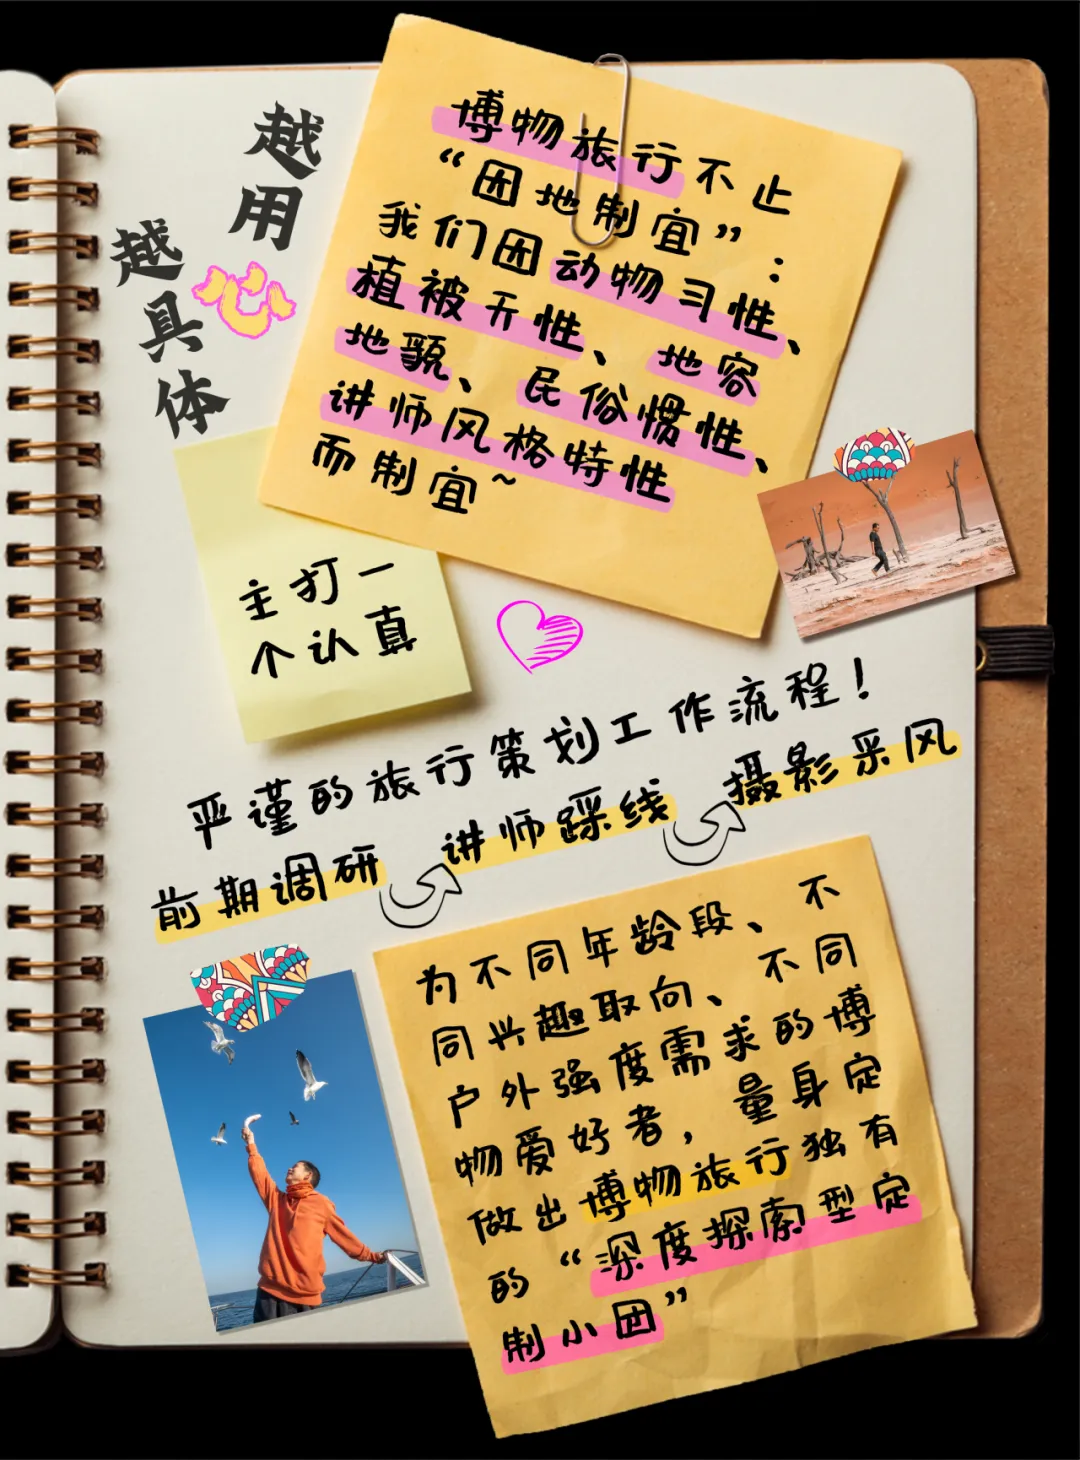 越用心
越具体
博物旅行不止
“因地制宜”：
我们因动物习性、
植被天性、地容
地貌、民俗惯性、
讲师风格特性
而制宜~
主打一
个认真
严谨的旅行策划工作流程！
前期调研 讲师踩线 摄影采风
为不同年龄段、不
同兴趣取向、不同
户外强度需求的博
物爱好者，量身定
做出博物旅行独有
的“深度探索型定
制小团”